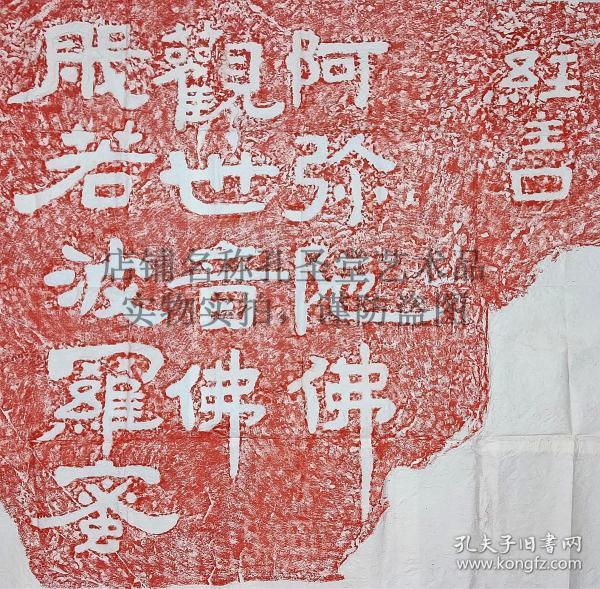 經主
阿弥陁佛
觀世音佛
般若波羅蜜
店铺名称孔圣堂艺术品
实物实拍，谨防盗图
孔夫子旧书网
www.kongfz.com